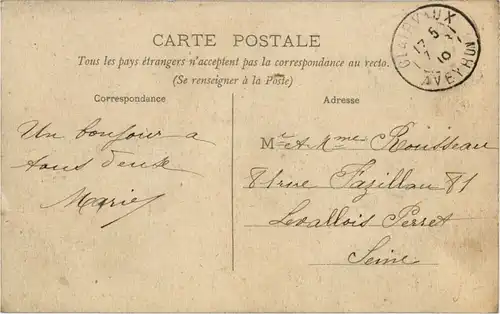 CARTE POSTALE
Tous les pays étrangers n'acceptent pas la correspondance au recto.
(Se renseigner à la Poste)
CLAIRVAUX
AVEYRON
Correspondance
Un bonjour a
tous deux
Marie
Adresse
Mr et Mme Rousseau
81 rue Fazillau 81
Levallois Perret
Seine